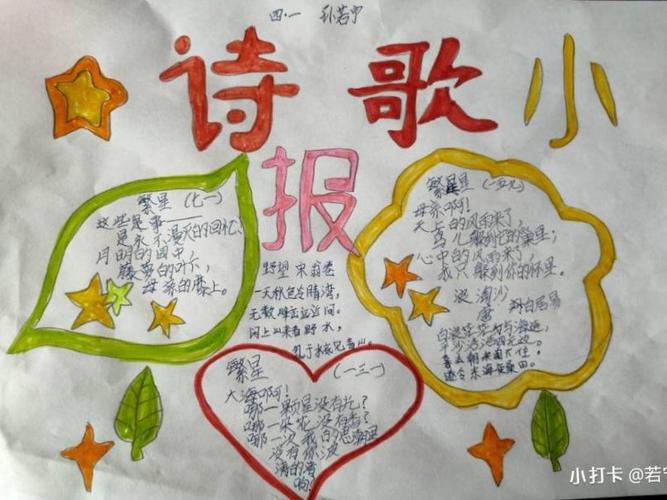 四·一 孙若宁
诗歌小
报
繁星（七一）
这些是事——
是永不漫灭的回忆、
月明的园中
藤萝的叶下，
母亲的膝上。
繁星（一五九）
母亲啊！
天上的风雨来了，
鸟儿躲到它的巢里；
心中的风雨来了，
我只躲到你的怀里。
浪淘沙
唐 白居易
白浪茫茫与海连，
平沙浩浩四无边。
暮去朝来淘不住，
遂令东海变桑田。
野望 宋翁卷
一天秋色冷晴湾，
无数峰峦远近间。
闲上山来看野水，
繁星（一三一）
大海啊！
哪一颗星没有光？
哪一朵花没有香？
哪一次我的思潮里
没有你波
涛的清
响？
小打卡 @若宁